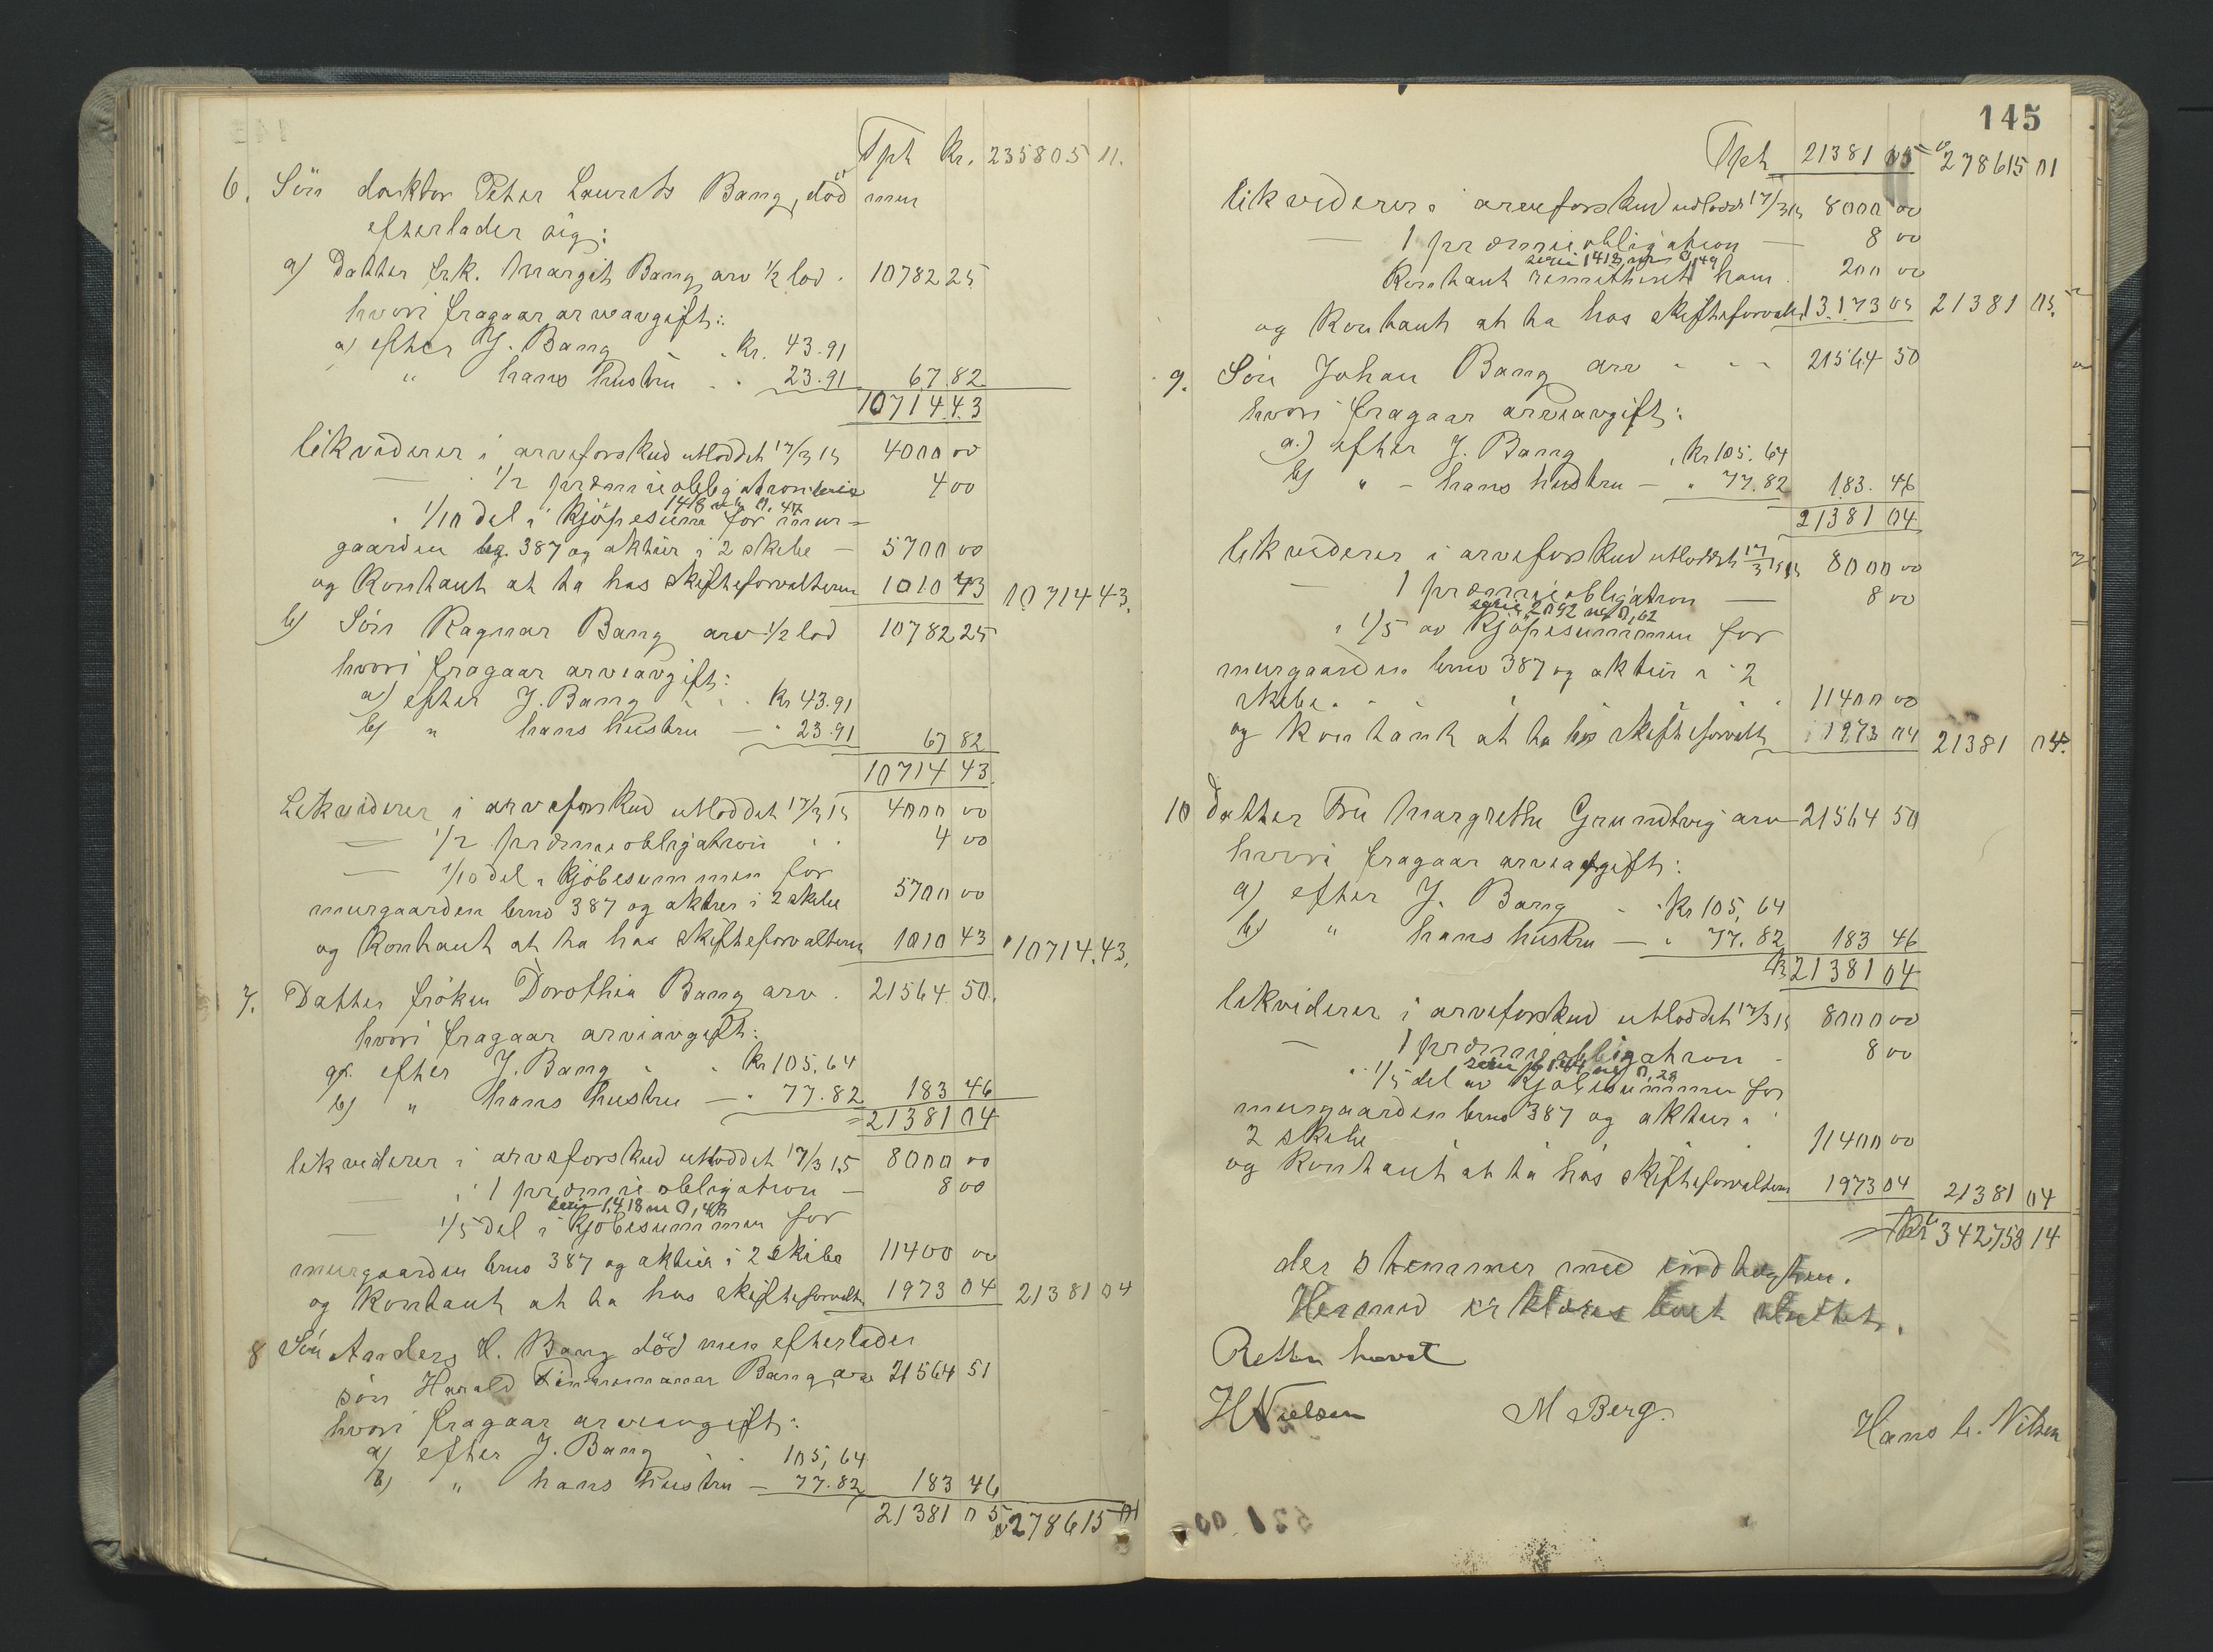 Tpt Kr. 235805 11.
6. Sön doktor Peter Laurits Bang, död men
efterlader sig:
a) Datter frk. Margit Bang, arv 1/2 lod . 10782 25
hvori fragaar arveavgift:
a) efter J. Bang . Kr. 43.91
" hans hustru . . 23.91 67 82
10714 43
likviderer i arveforskud utloddet 17/3 15 4000 00
— 1/2 præmieobligation serie 4 00
1418 nr 0,47
" 1/10 del i kjöpesum for mur-
gaarden bg. 387 og aktier i 2 skibe — 5700 00
og Kontant at ha hos skifteforvalteren 1010 43 10714 43.
b) Sön Ragnar Bang arv 1/2 lod 10782 25
hvori fragaar arveavgift:
a) efter J. Bang . . Kr 43.91
b) " hans hustru — " 23.91 67 82
10714 43.
Likviderer i arveforskud utloddet 17/3 15 4000 00
— 1/2 præmieobligation . . 4 00
— 1/10 del i kjöbesummen for
murgaarden brno 387 og aktier i 2 skibe 5700 00
og Kontant at ha hos skifteforvalteren 1010 43 " 10714.43.
7. Datter fröken Dorothea Bang arv . 21564 50.
hvori fragaar arveavgift:
a. efter J. Bang . . Kr 105,64
b) " hans hustru — " 77.82 183 46
21381 04
likviderer i arveforskud utloddet 17/3 15 8000 00
— " 1 præmieobligation — 8 00
serie 1418 nr 0,48
— 1/5 del i kjöbesummen for
murgaarden brno 387 og aktier i 2 skibe 11400 00
og Kontant at ha hos skifteforvalt. 1973 04 21381 04
8 Sön Anders H. Bang död men efterlader
sön Harald Timmermann Bang, arv 21564 51
hvori fragaar arveavgift:
a) efter J. Bang . . 105,64
b) " hans hustru — 77.82 183 46
21381 05 278615 01
145
Tpt 21381 05 278615 01
likviderer i arveforskud utlodd 17/3 15 8000 00
— 1 præmieobligation — 8 00
serie 1418, nr 0,49
Kontant remitteret ham . 200 00
og Kontant at ha hos skifteforvalt. 13.173 05 21381 05.
9. Sön Johan Bang arv - - - 21564 50
hvori fragaar arveavgift:
a.) efter J. Bang , Kr 105.64
b) " - hans hustru — " 77.82 183. 46
21381 04
likviderer i arveforskud utloddet 17/3 15 8000 00
— 1 præmieobligation — 8 00
serie 2092 nr 0,62
" 1/5 av kjöpesummen for
murgaarden brno 387 og aktier i 2
skibe . . . 11400 00
og kontant at ha hos skifteforvalt. 1973 04 21381 04.
10 datter Fru Margrethe Grundtvig arv 21564 50
hvori fragaar arveavgift:
a) efter J. Bang - . Kr 105,64
b) " hans hustru — " 77.82 183 46
Kr 21381 04
likviderer i arveforskud utloddet 17/3 15 8000 00
— 1 præmieobligation - 8 00
" 1/5 del av kjöbesummen for
murgaarden brno 387 og aktier i
2 skibe 11400 00
og Kontant at ha hos skifteforvalteren 1973 04 21381 04
Kr 342758 14
der stemmer med indtægten.
Hermed erklæres boet sluttet.
Retten hævet
H Nielsen M Berg. Hans L. Nilsen